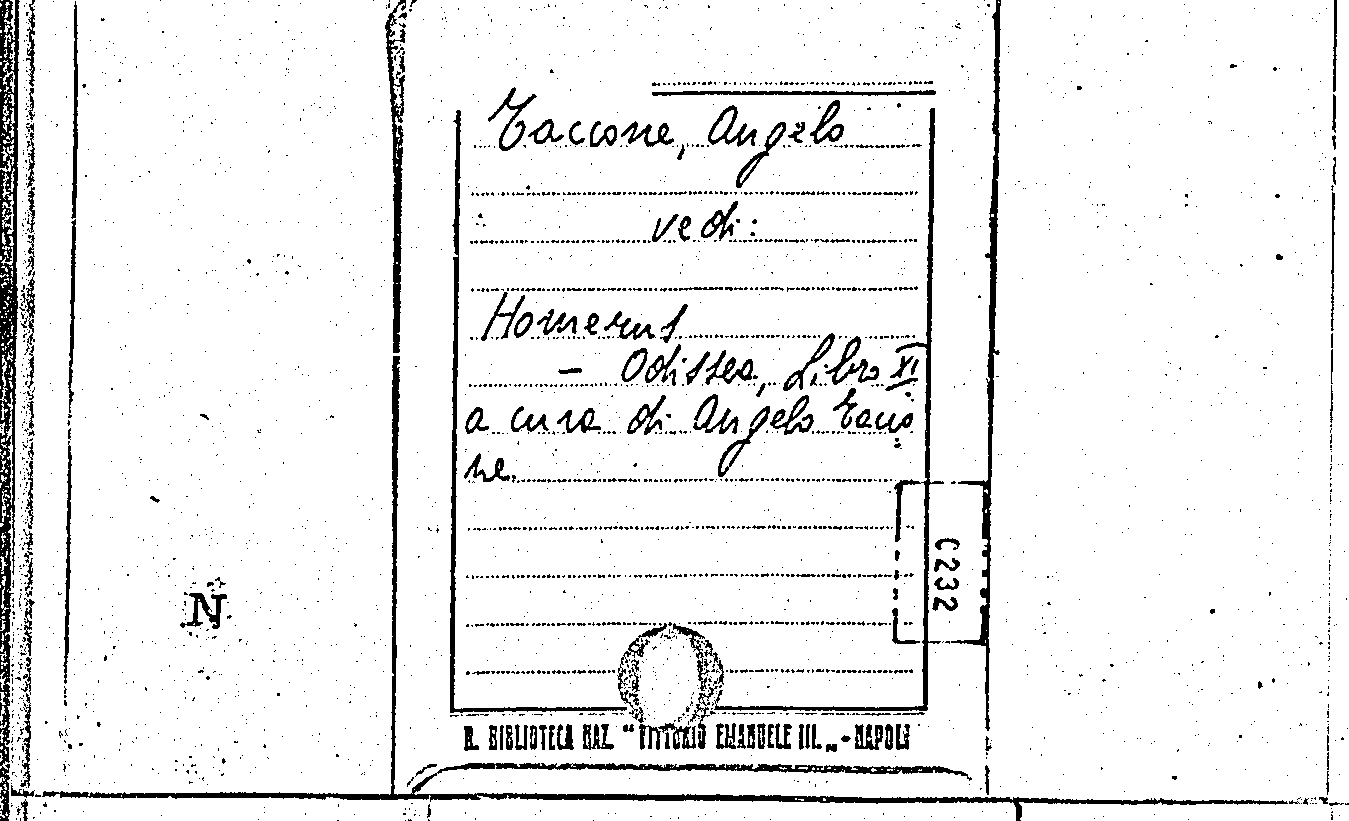 Taccone, Angelo
vedi:
Homerus
- Odissea, Libro XI
a cura di Angelo Tacco
ne.
C232
N
R. BIBLIOTECA NAZ. "VITTORIO EMANUELE III.„-NAPOLI